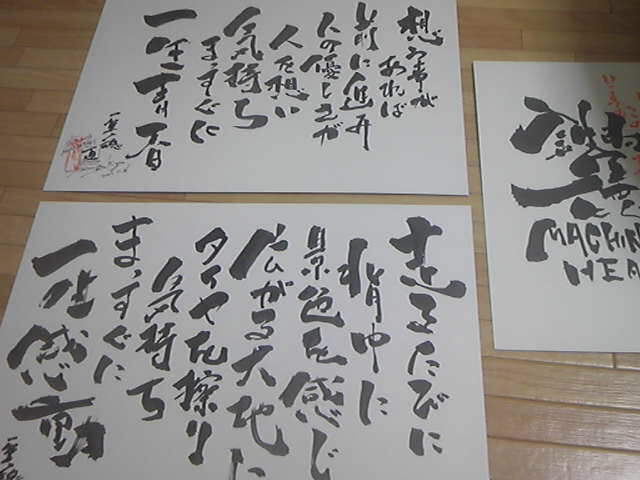 想う事が
あれば
前に進み
人の優しさが
人を想い
気持ち
まっすぐに
一生青春
走るたびに
背中に
景色を感じ
広がる大地に
タイヤを擦り
気持ち
まっすぐに
一生感動
MACHIN
HEA